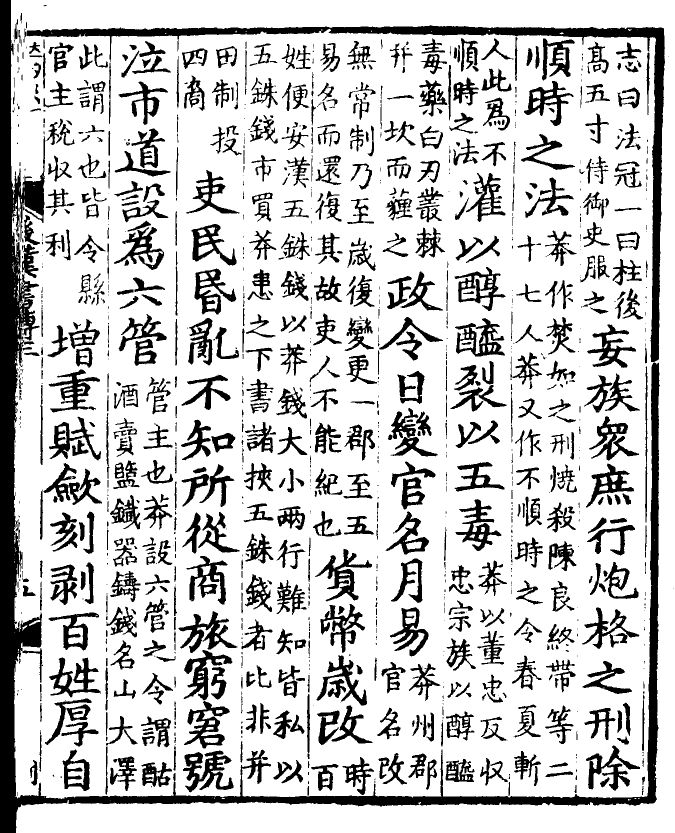 志曰法冠一曰柱後
高五寸侍御史服之
妄族衆庶行炮格之刑除
順時之法
莽作焚如之刑燒殺陳良終帶等二
十七人莽又作不順時之令春夏斬
人此爲不
順時之法
灌以醇醯裂以五毒
莽以董忠反収
忠宗族以醇醯
毒藥白刃叢棘
幷一坎而薶之
政令日變官名月易
莽州郡
官名改
無常制乃至歲復變更一郡至五
易名而還復其故吏人不能紀也
貨幣歲改
時
百
姓便安漢五銖錢以莽錢大小兩行難知皆私以
五銖錢市買莽患之下書諸挾五銖錢者比非井
田制投
四裔
吏民昬亂不知所從商旅窮窘號
泣市道設爲六管
管主也莽設六管之令謂酤
酒賣鹽鐵器鑄錢名山大澤
此謂六也皆令縣
官主稅収其利
增重賦斂刻剥百姓厚自
後漢書傳三